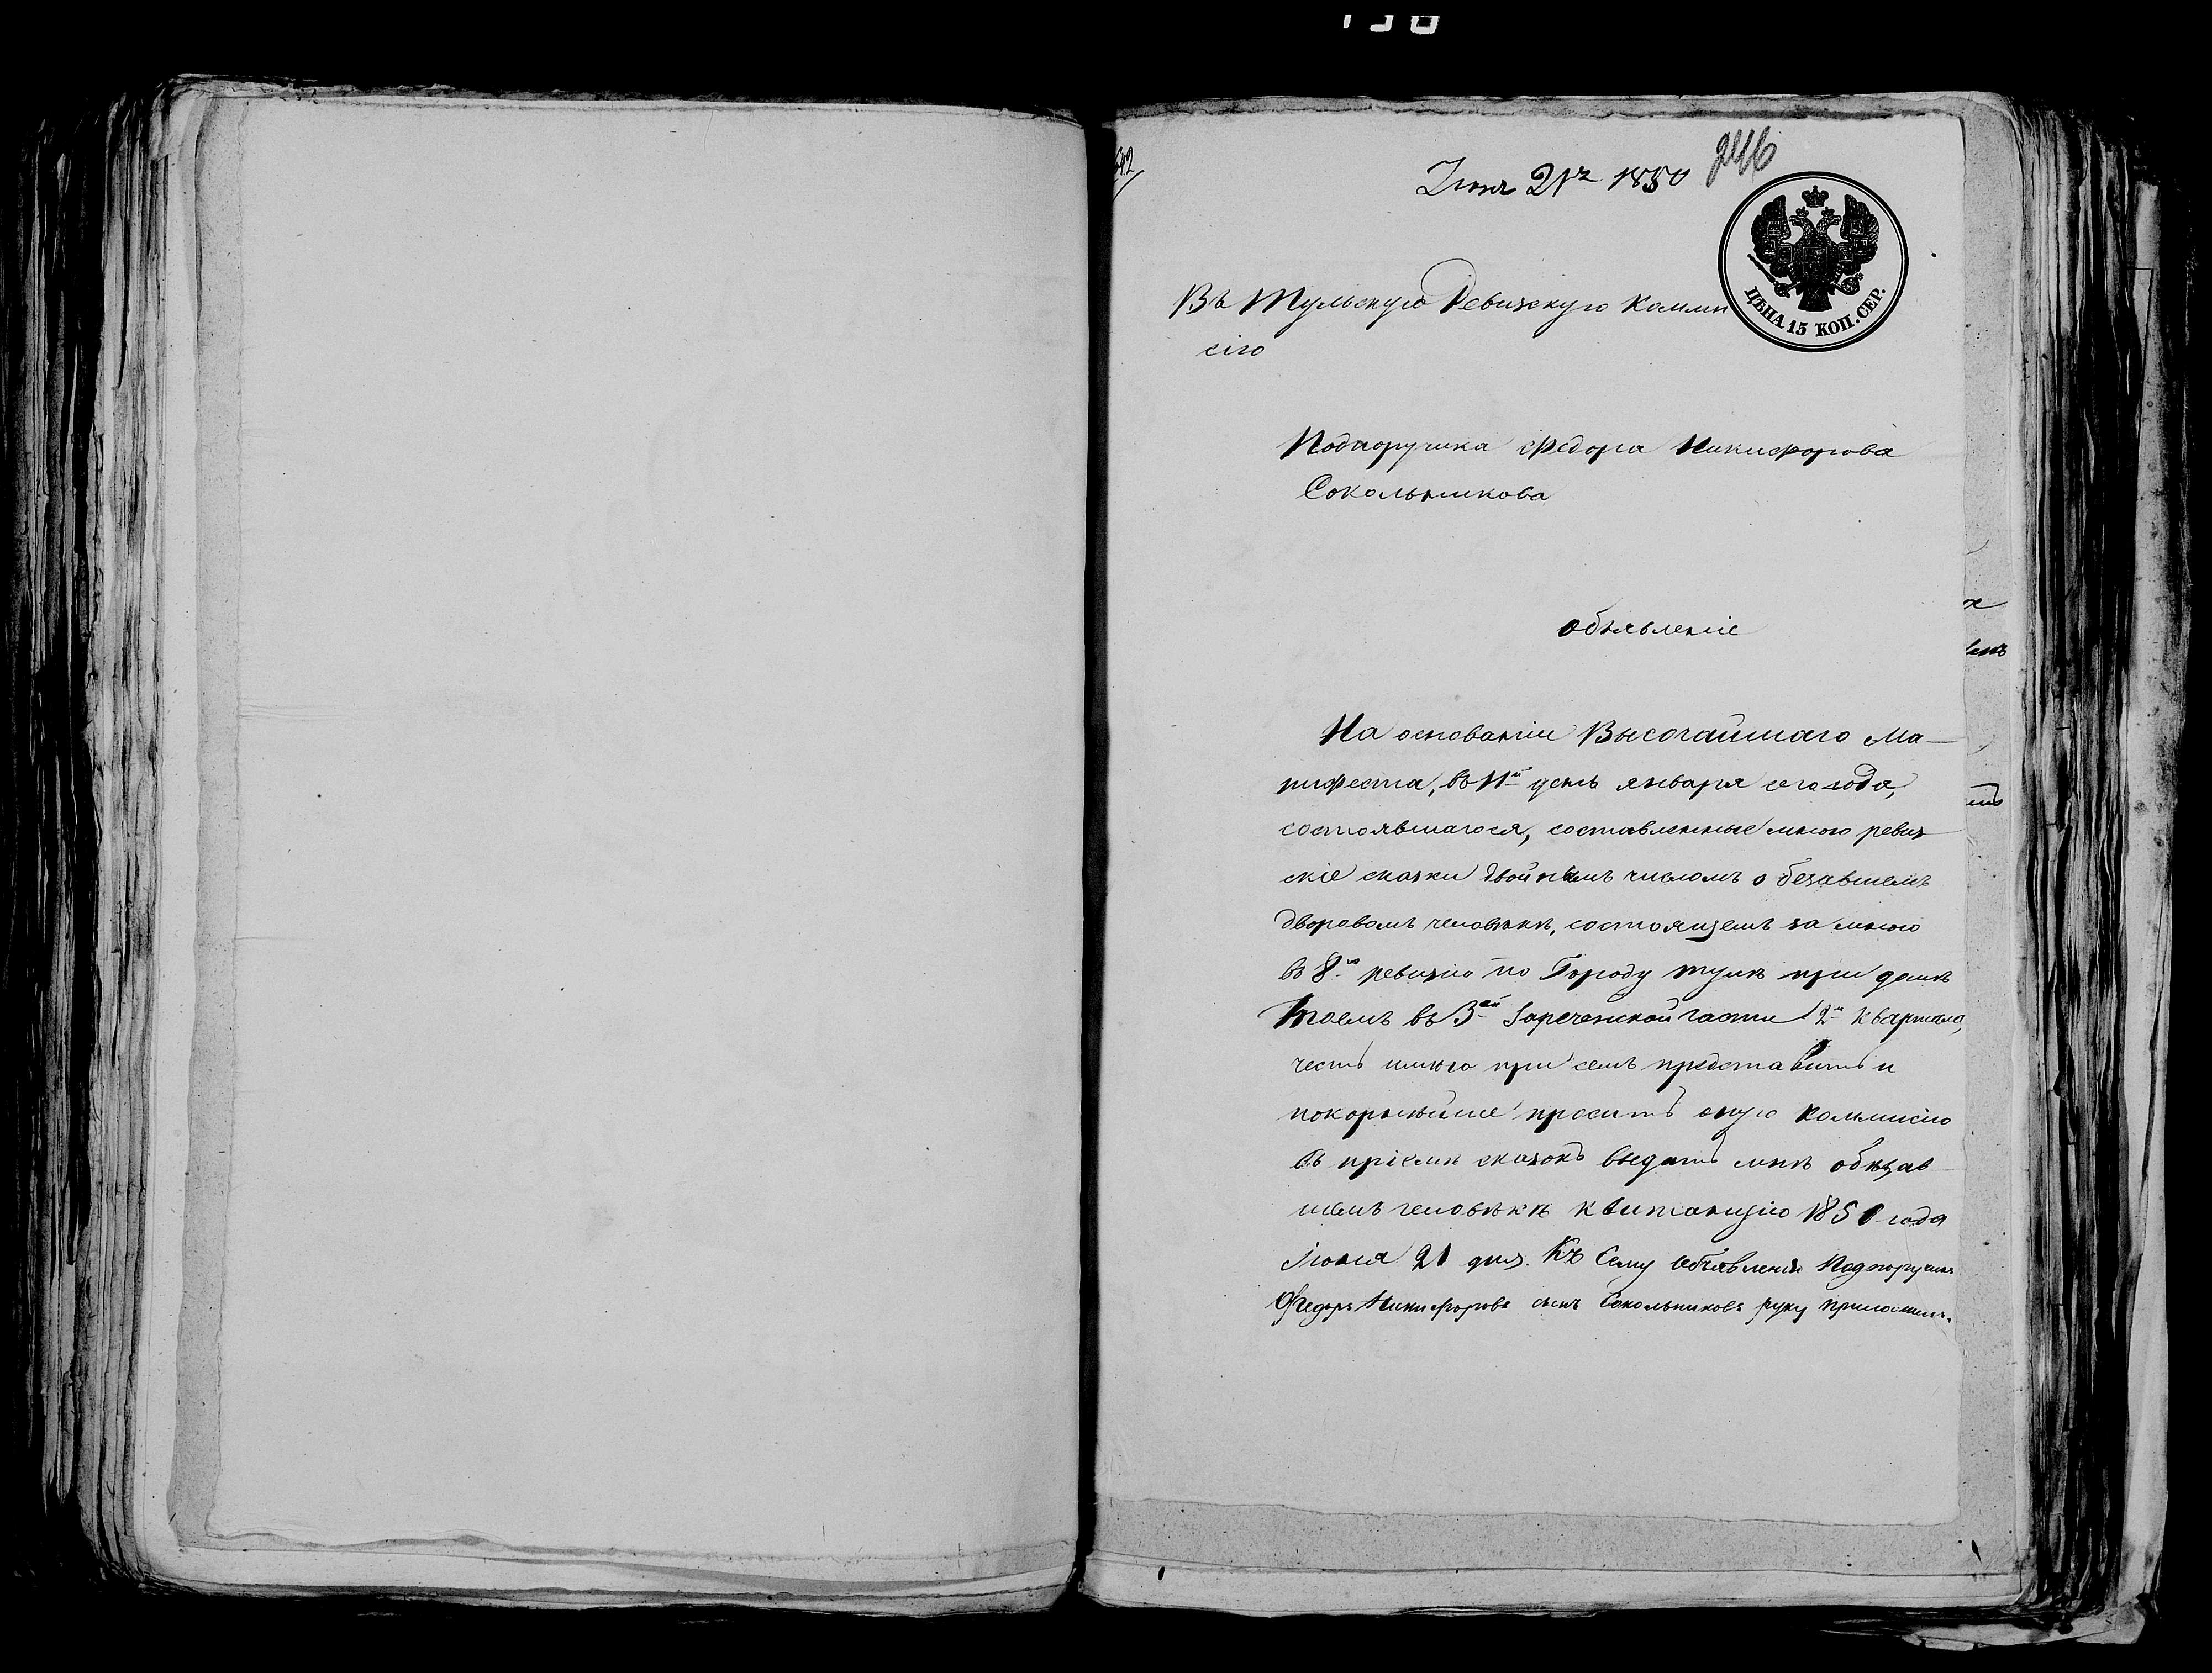 Июня 21го 1850
246
ЦѢНА 15 КОП. СЕР.
Въ Тульскую Ревизскую Комми
сію
Подпоручика Федора Никифорова
Сокольникова
объявленіе
На основаніи Высочайшаго Ма-
нифеста, въ 11й день января сего года,
состоявшагося, составленные мною ревиз
скіе сказки двойнымъ числомъ о безавшемъ
дворовомъ человѣкѣ, состоящемъ за мною
въ 8ю ревизію по Городу Тулѣ при домѣ
моемъ въ 3ей Зареченской части 2й квартала,
честь имѣю при семъ представить и
покорнѣйше просить оную коммисію
въ пріемѣ сказокъ выдать мнѣ объ
шемъ человѣкѣ квитанцію 1850 года
Іюня 21 дня. Къ Сему Объявленію Подпоручикъ
Федоръ Никифоровъ сынъ Сокольниковъ руку приложилъ.